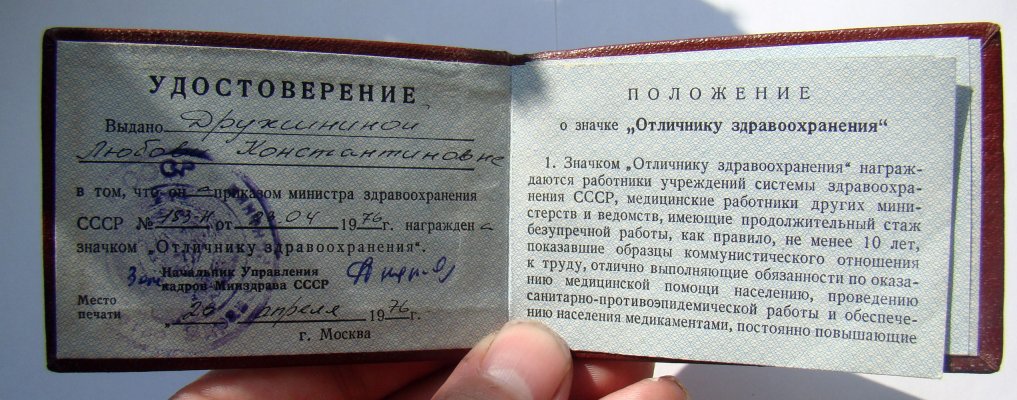 УДОСТОВЕРЕНИЕ
Выдано Дружининой
Любови Константиновне
в том, что он а приказом министра здравоохранения
СССР № 183-Н от 04 1976 г. награжден а
значком „Отличнику здравоохранения“.
Начальник Управления
кадров Минздрава СССР
Место
печати
„ апреля 1976 г.
г. Москва
ПОЛОЖЕНИЕ
о значке „Отличнику здравоохранения“
1. Значком „Отличнику здравоохранения“ награж-
даются работники учреждений системы здравоохра-
нения СССР, медицинские работники других мини-
стерств и ведомств, имеющие продолжительный стаж
безупречной работы, как правило, не менее 10 лет,
показавшие образцы коммунистического отношения
к труду, отлично выполняющие обязанности по оказа-
нию медицинской помощи населению, проведению
санитарно-противоэпидемической работы и обеспече-
нию населения медикаментами, постоянно повышающие